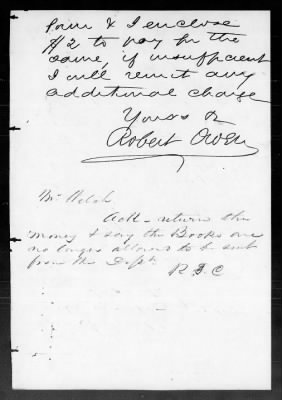 & I enclose
$2 to pay for the
same, if insufficient
I will remit any
additional charge
Yours &
Robert Owen
Mr Welch
Ack - return the
money & say the Books are
no longer allowed to be sent
from the Dept.